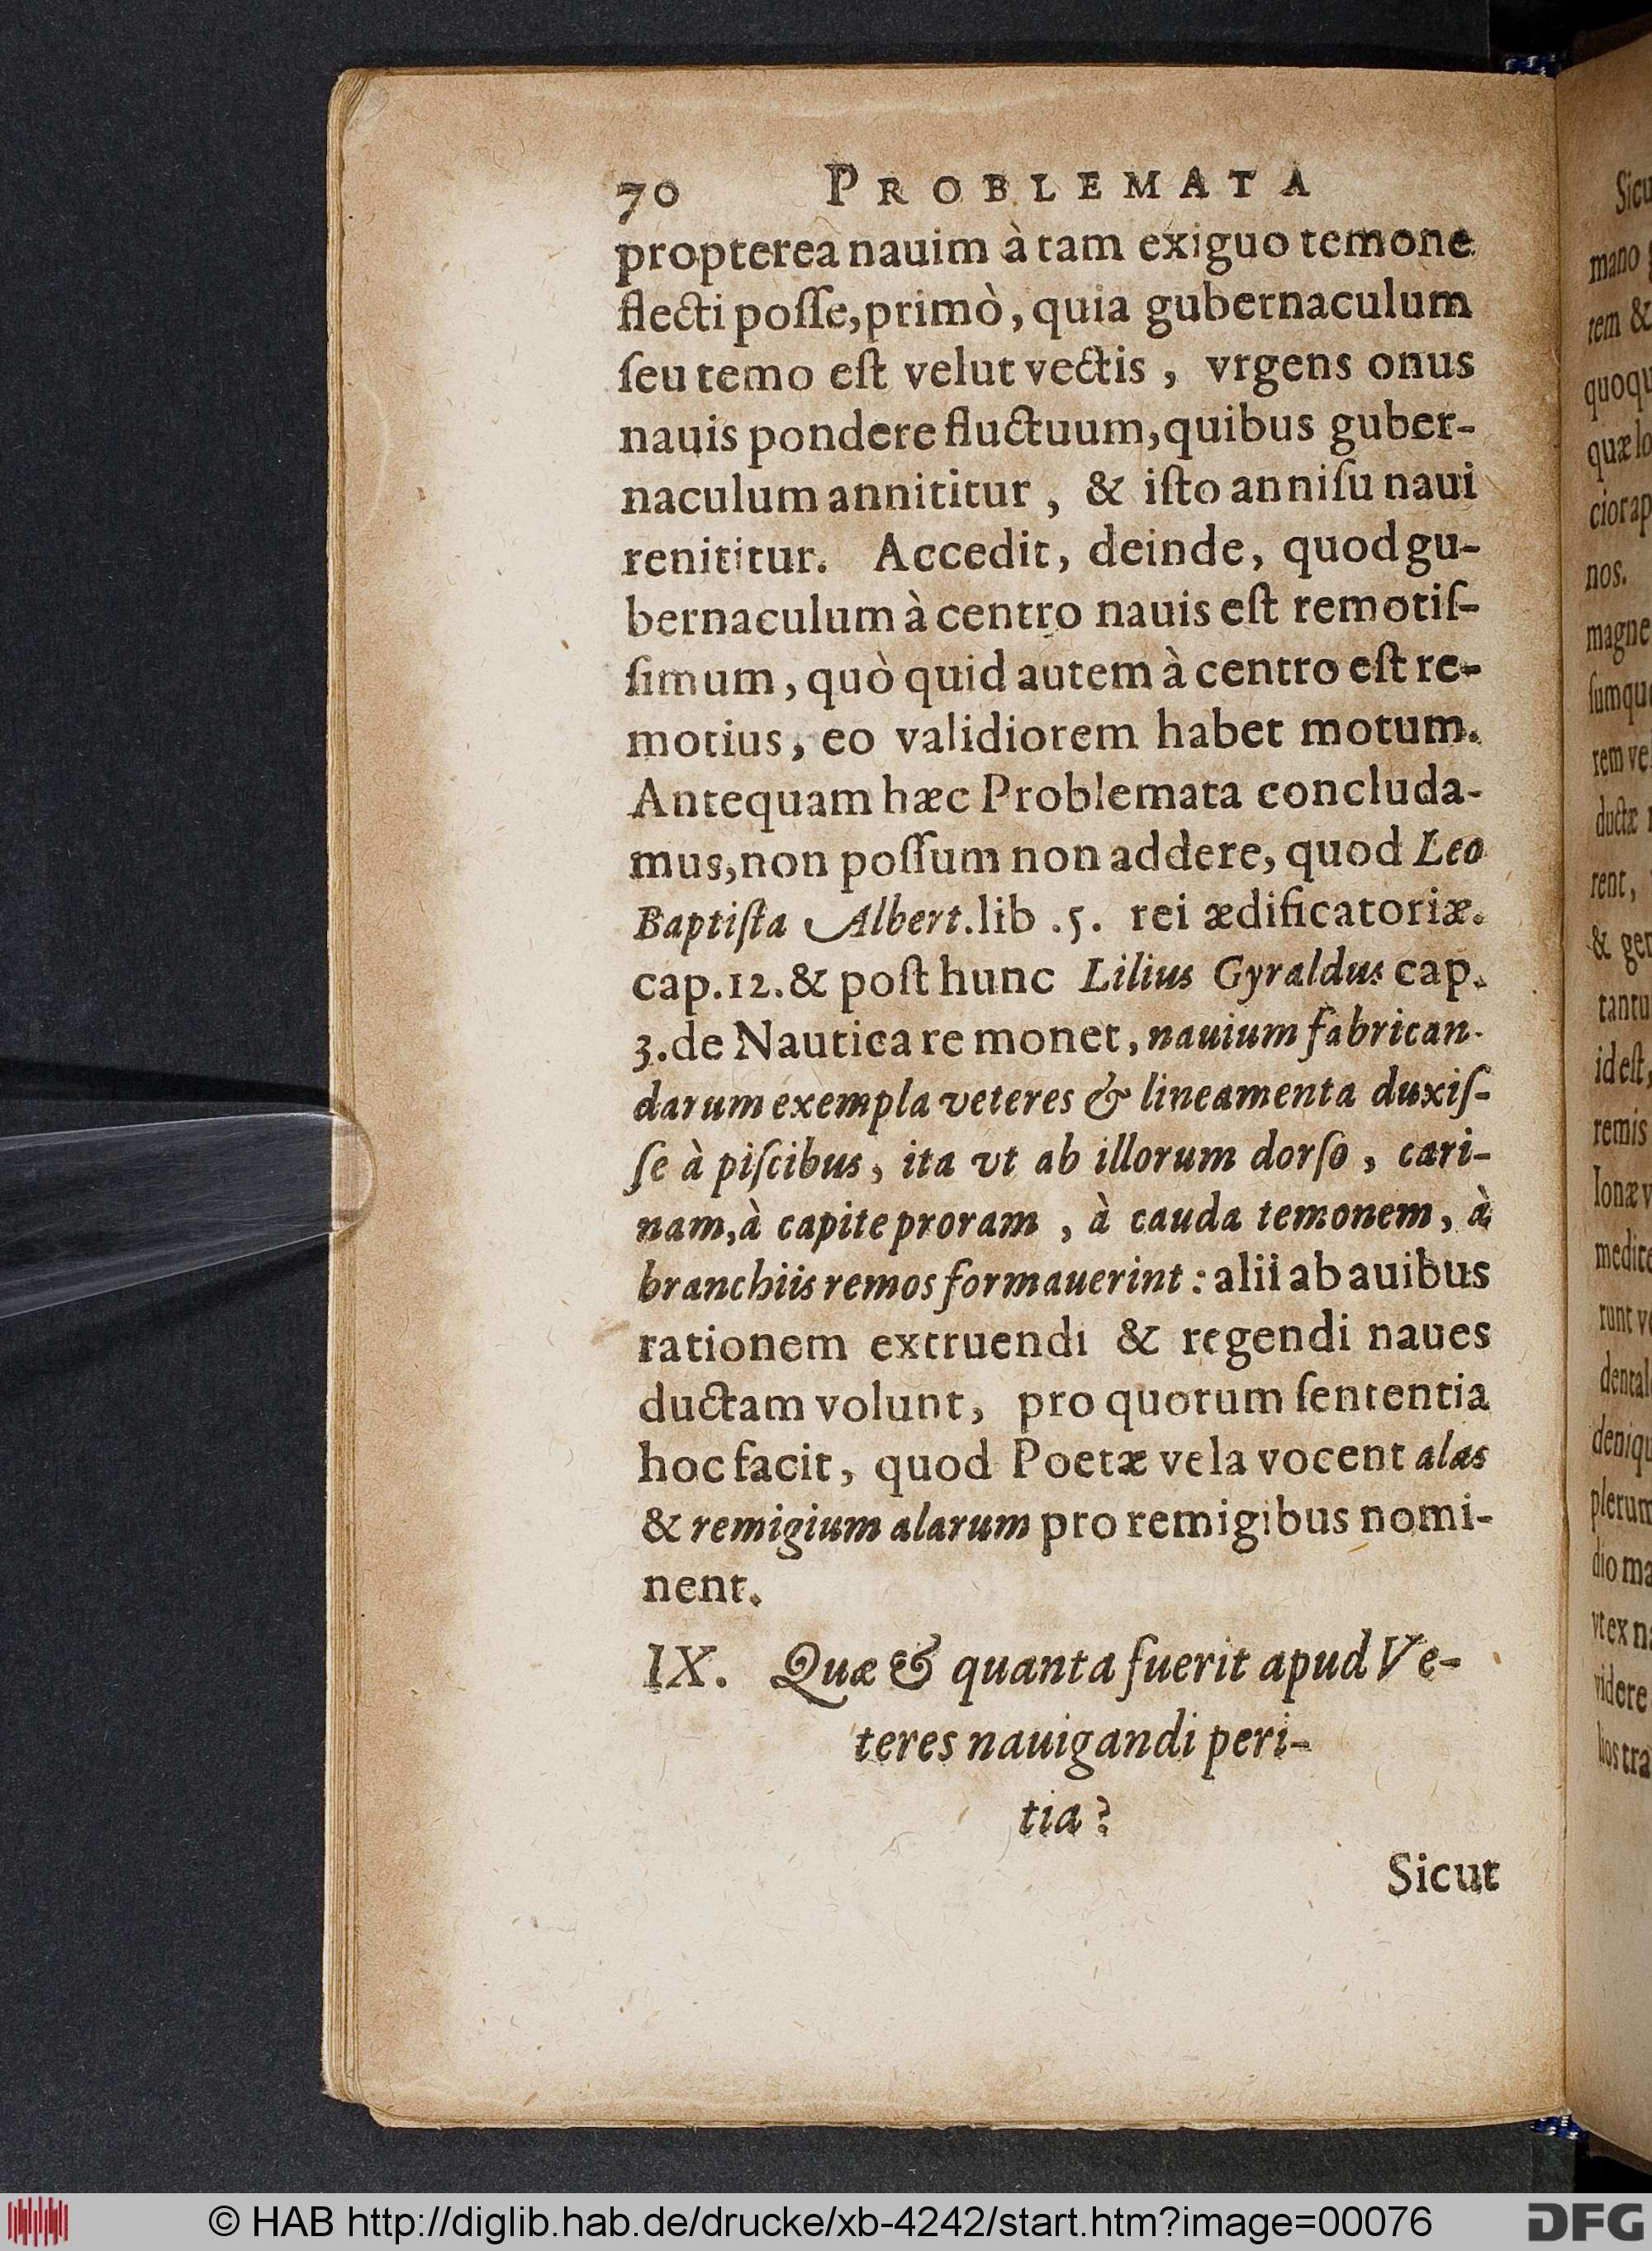 70 PROBLEMATA
propterea nauim à tam exiguo temone
flecti posse, primò, quia gubernaculum
ſeu temo eſt velut vectis, vrgens onus
nauis pondere fluctuum, quibus guber-
naculum annititur, & iſto anniſu naui
renititur. Accedit, deinde, quod gu-
bernaculum à centro nauis eſt remotiſ-
ſimum, quò quid autem à centro eſt re-
motius, eo validiorem habet motum.
Antequam hæc Problemata concluda-
mus, non poſſum non addere, quod Leo
Baptiſta Albert. lib .5. rei ædificatoriæ.
cap. 12. & poſt hunc Lilius Gyraldus cap.
3. de Nautica re monet, nauium fabrican-
darum exempla veteres & lineamenta duxiſ-
ſe à piſcibus, ita vt ab illorum dorſo, cari-
nam, à capite proram, à cauda temonem, à
branchiis remos formauerint: alii ab auibus
rationem extruendi & regendi naues
ductam volunt, pro quorum ſententia
hoc facit, quod Poetæ vela vocent alas
& remigium alarum pro remigibus nomi-
nent.
IX. Quæ & quanta fuerit apud Ve-
teres nauigandi peri-
tia?
Sicut
mano
rem &
nos.
rent,
id eſt,
remis
videre
© HAB http://diglib.hab.de/drucke/xb-4242/start.htm?image=00076
DFG